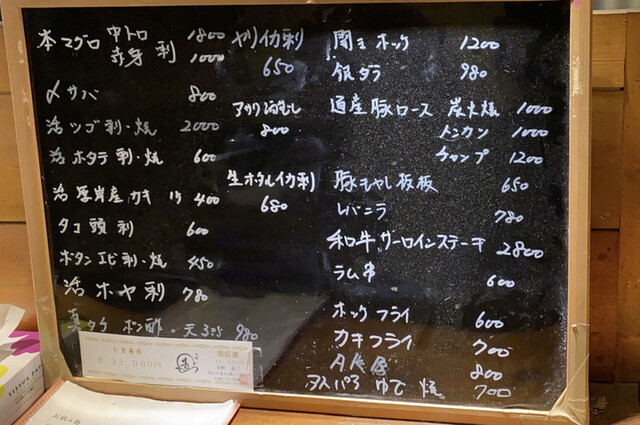 本マグロ 中トロ 刺 1800
赤身 1000
〆サバ 800
活ツブ刺・焼 2000
活ホタテ刺・焼 600
活厚岸産カキ 1ケ 400
タコ頭刺 600
ボタンエビ刺・焼 450
活ホヤ刺 780
真タチ ポン酢・天ぷら 980
ヤリイカ刺
650
アサリ酒むし
800
生ホタルイカ刺
680
開きホッケ 1200
銀ダラ 980
道産豚ロース 炭火焼 1000
トンカツ 1000
チャップ 1200
豚もやし板板 650
レバニラ 780
和牛サーロインステーキ 2800
ラム串 600
ホッケフライ 600
カキフライ 700
AKB 800
アスパラ ゆで 焼 700
お食事券
¥3,000円
領収書
TISSUE PAPER